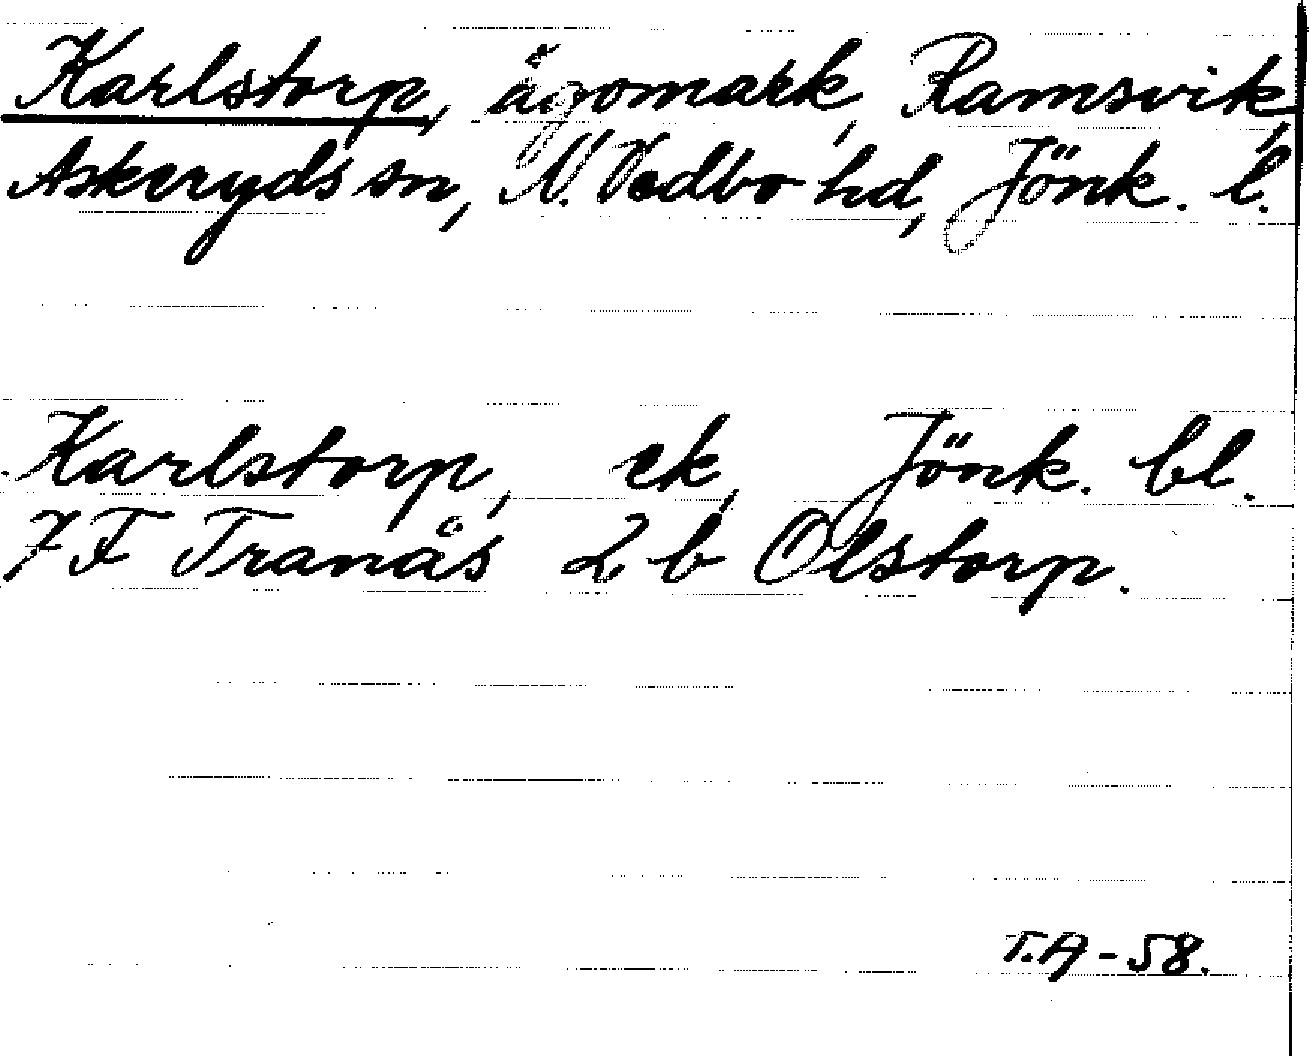 Karlstorp, ägomark, Ramsvik,
Askeryds sn, N. Vedbo hd, Jönk. l.
Karlstorp, ek, Jönk. bl.
7F Tranås 2 b Olstorp.
T.A - 58.